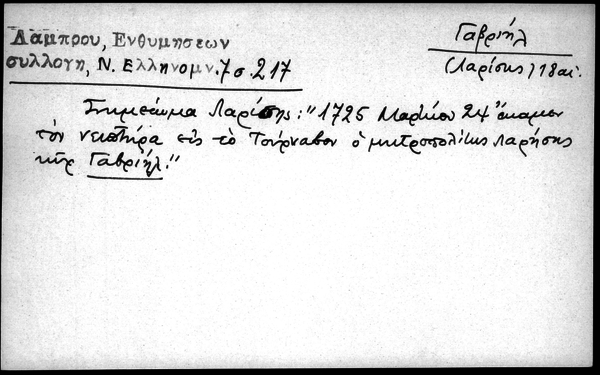 Λάμπρου, Ενθυμησεων
συλλογη, Ν. Ελληνομν. 7 σ. 217
Γαβριήλ
(Λαρίσης) 18 αἰ.
Σημείωμα Λαρίσης: "1725 Μαρτίου 24 ἔκαμεν
τὸν νειπτήρα εἰς τὸ Τούρναβον ὁ μητροπολίτης Λαρήσης
κὺρ Γαβριήλ."